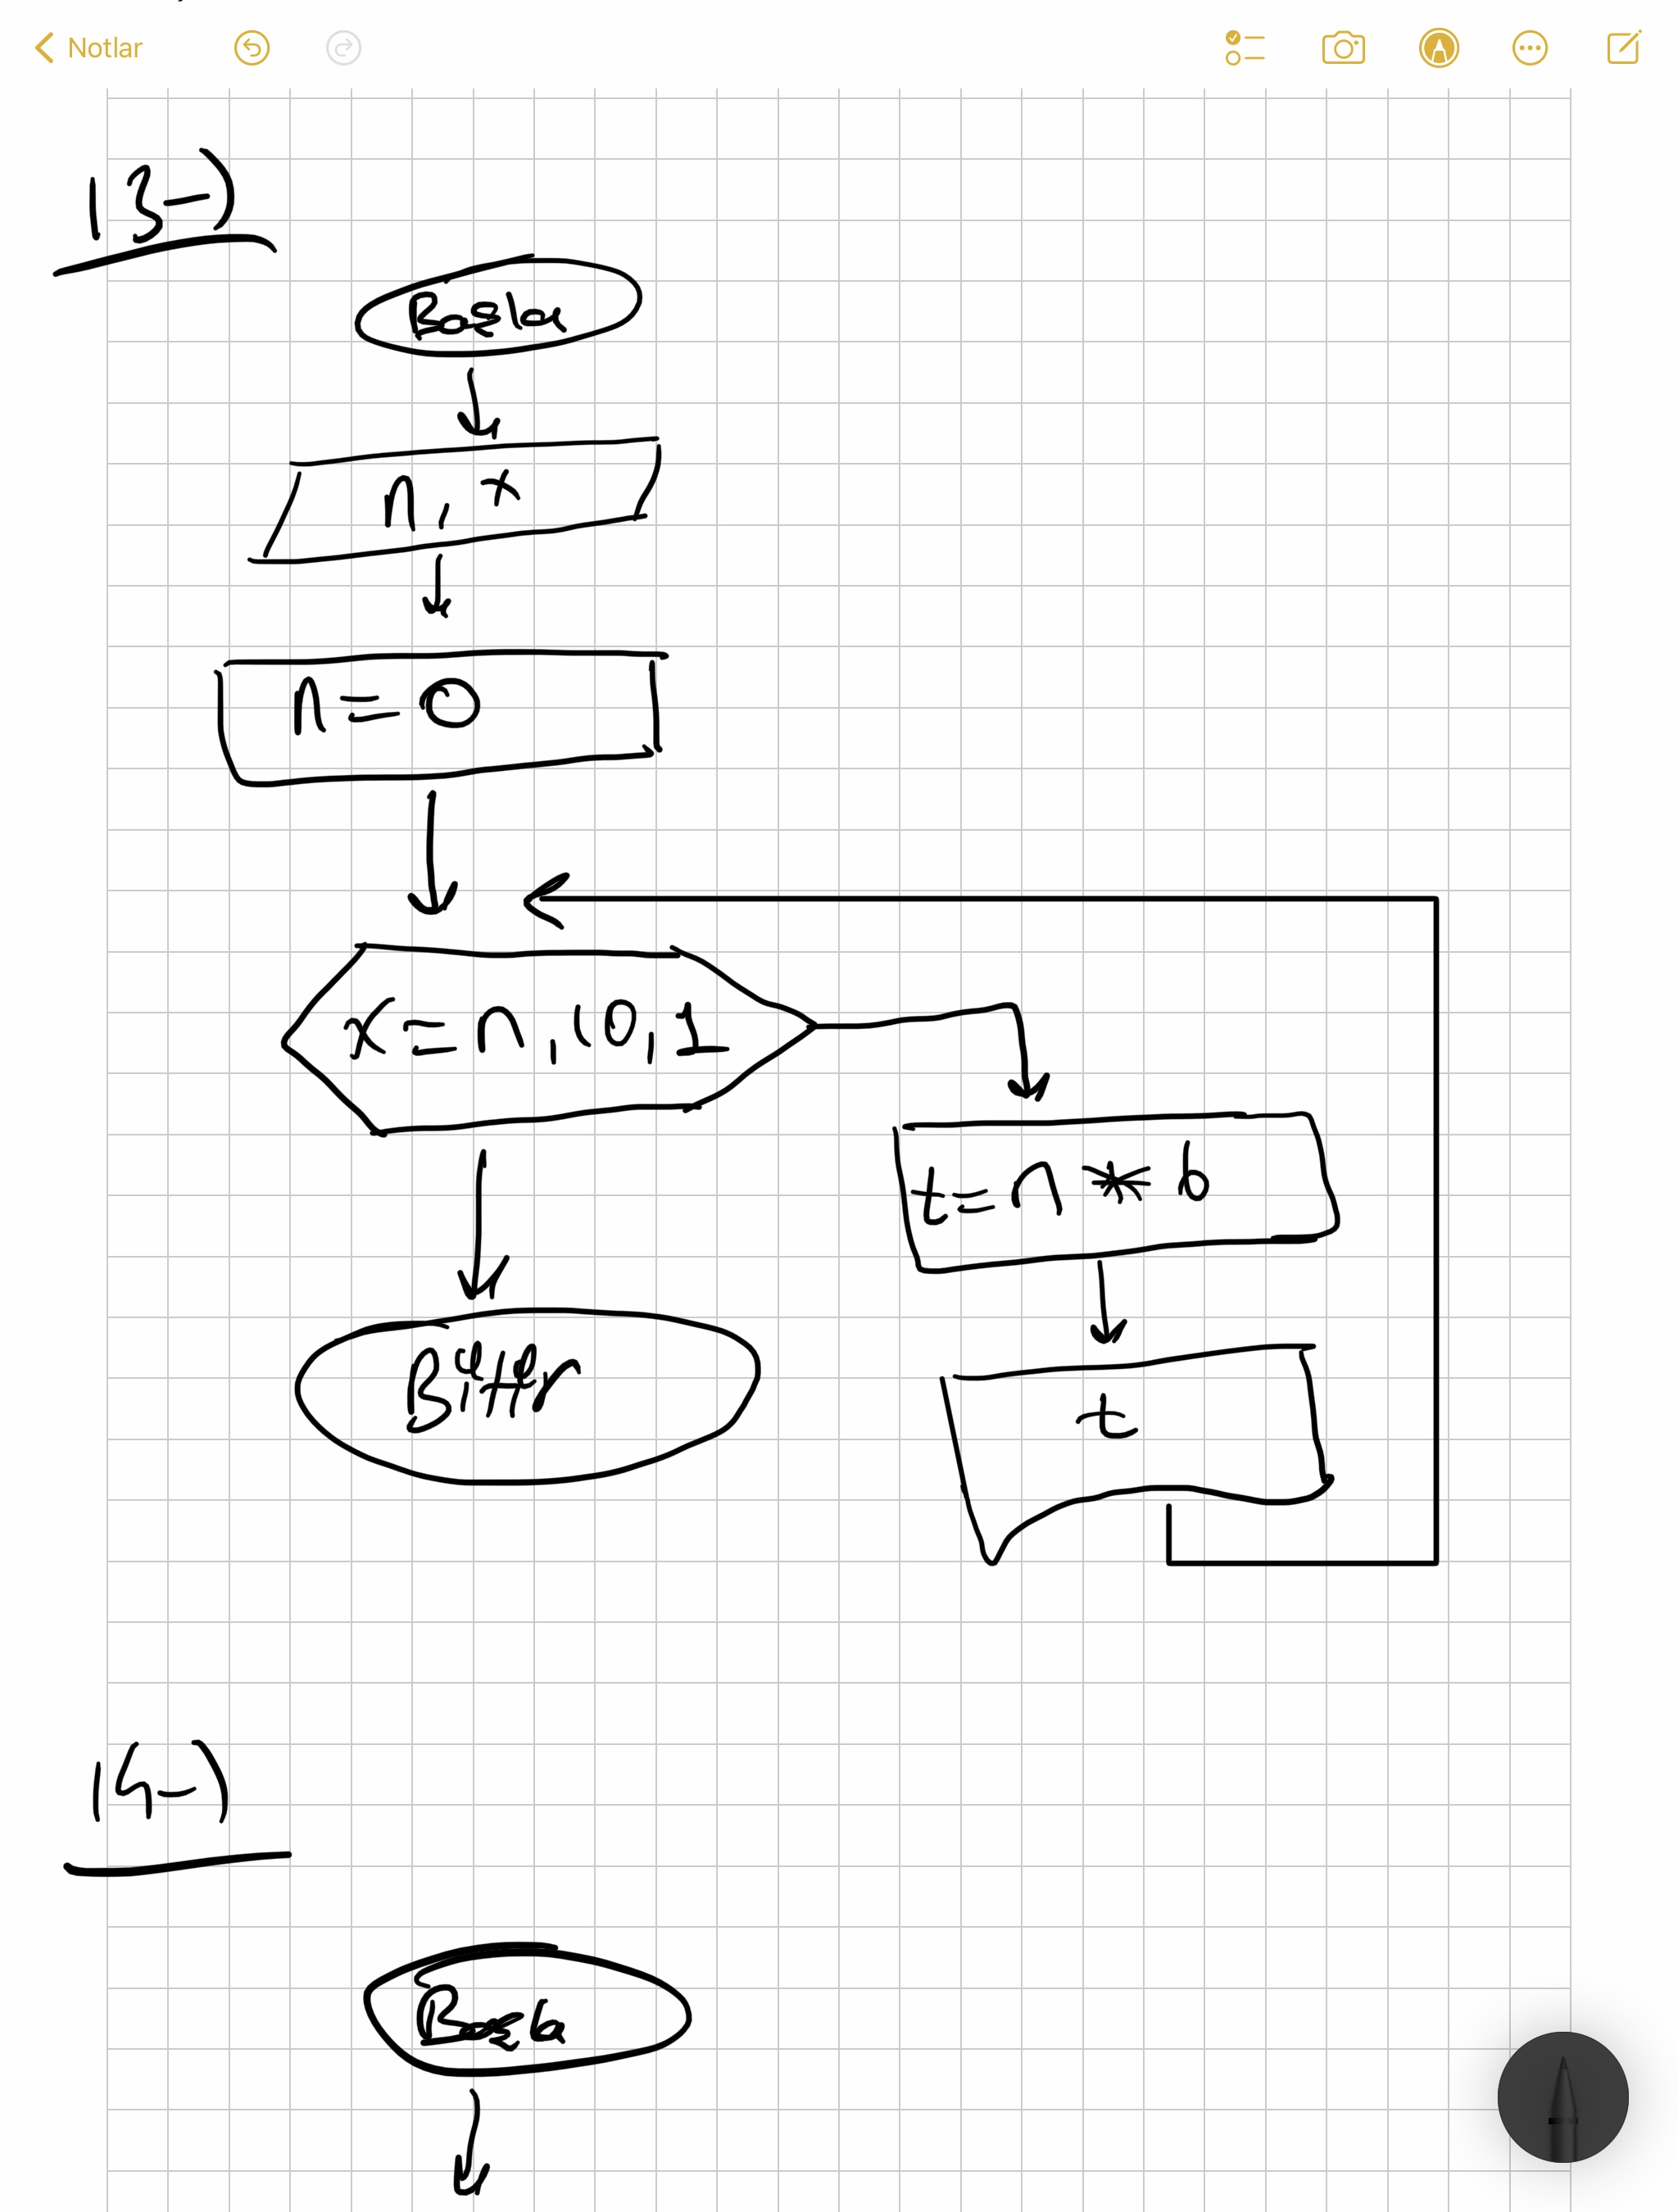 Notlar
13-)
Başla
n, x
n = 0
x = n, 10, 1
t = n * 6
Bitir
t
14-)
Başla